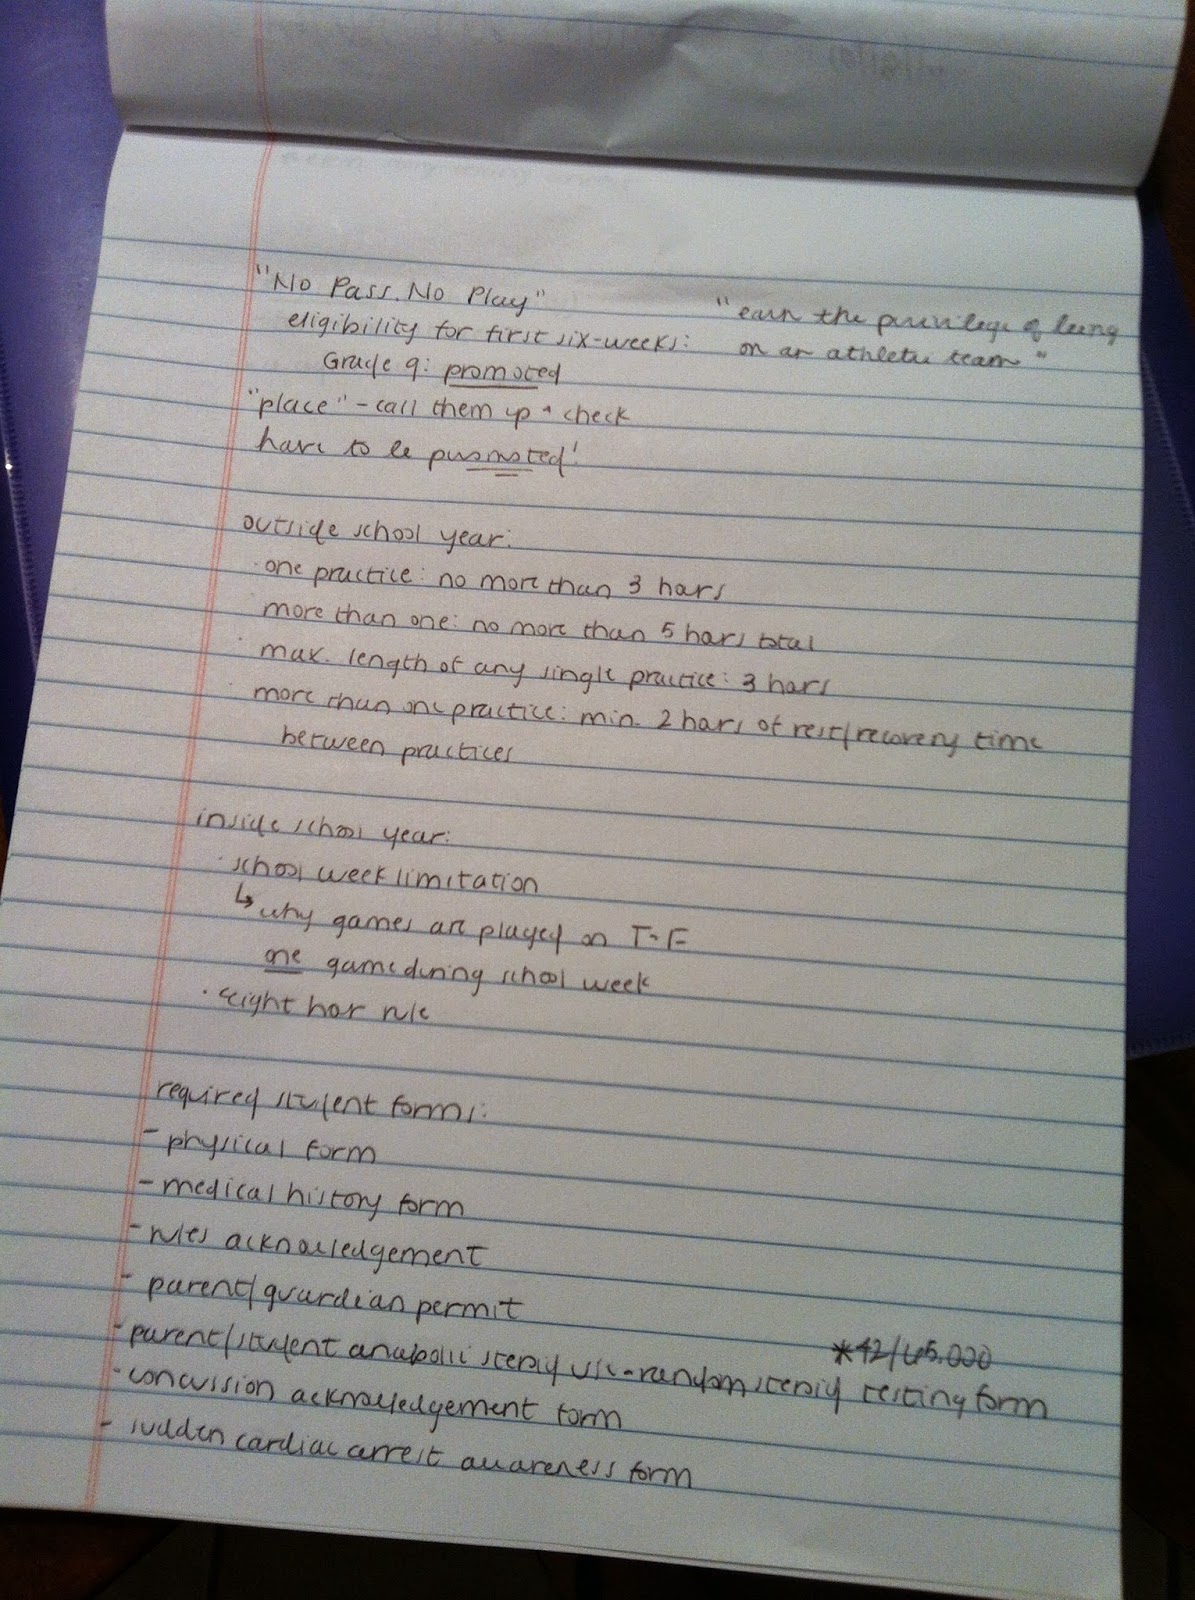 "No Pass. No Play"
"earn the privilege of being
on an athletic team"
eligibility for first six-weeks:
Grade 9: promoted
"place" - call them up + check
have to be promoted!
outside school year:
· one practice: no more than 3 hours
more than one: no more than 5 hours total
· max. length of any single practice: 3 hours
· more than one practice: min. 2 hours of rest/recovery time
between practices
inside school year:
· school week limitation
↳ why games are played on T-F
one game during school week
· eight hour rule
required student forms:
- physical form
- medical history form
- rules acknowledgement
- parent/guardian permit
*42/65.000
- parent/student anabolic steroid use-random steroid testing form
- concussion acknowledgement form
- sudden cardiac arrest awareness form